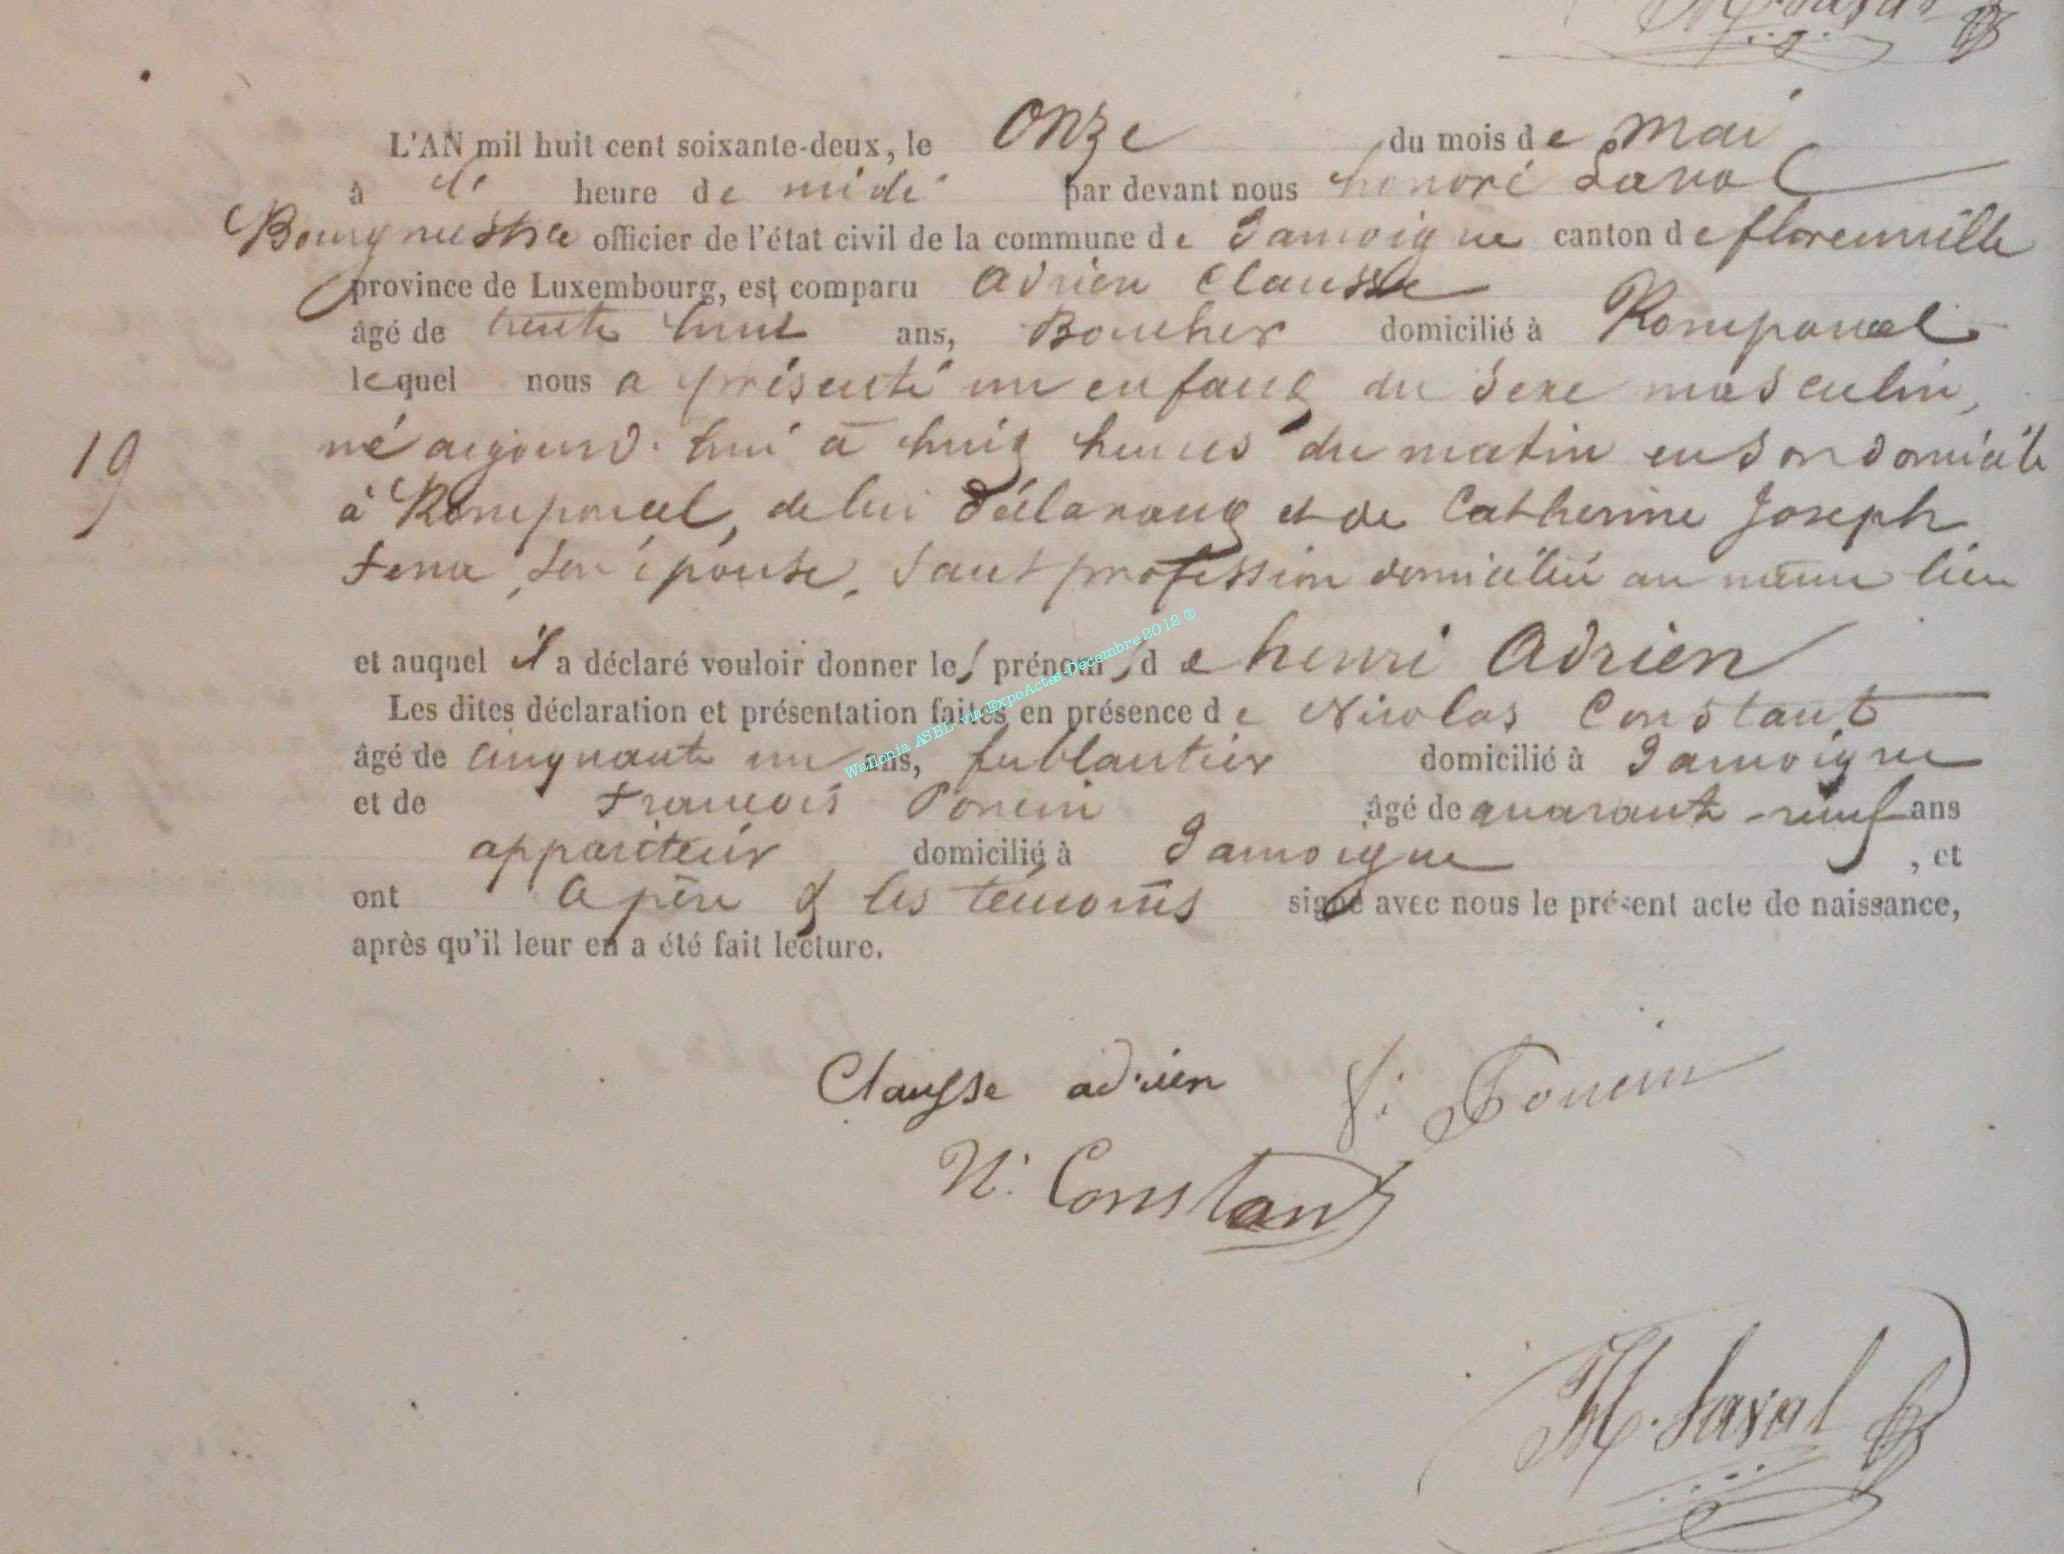 L'AN mil huit cent soixante-deux, le Onze du mois de Mai
à heure de midi par devant nous honoré Laval
Bourgmestre officier de l'état civil de la commune de Jamoigne canton de florenville
province de Luxembourg, est comparu Adrien Clausse
âgé de trente huit ans, Boucher domicilié à Romponcel
lequel nous a présenté un enfant du sexe masculin,
19
né aujourd'hui à huit heures du matin en son domicile
à Romponcel, de lui déclarant et de Catherine Joseph
son épouse, sans profession domiciliée au même lieu
et auquel il a déclaré vouloir donner les prénoms de henri Adrien
Les dites déclaration et présentation faites en présence de Nicolas Constant
âgé de cinquante un ans, ferblantier domicilié à Jamoigne
et de François Poncin âgé de quarante-neuf ans
appariteur domicilié à Jamoigne , et
ont le père & les témoins signé avec nous le présent acte de naissance,
après qu'il leur en a été fait lecture.
Wallonia ASBL via ExpoActes Décembre 2012 ®
Clausse adrien f. Poncin
N. Constant
H. Laval